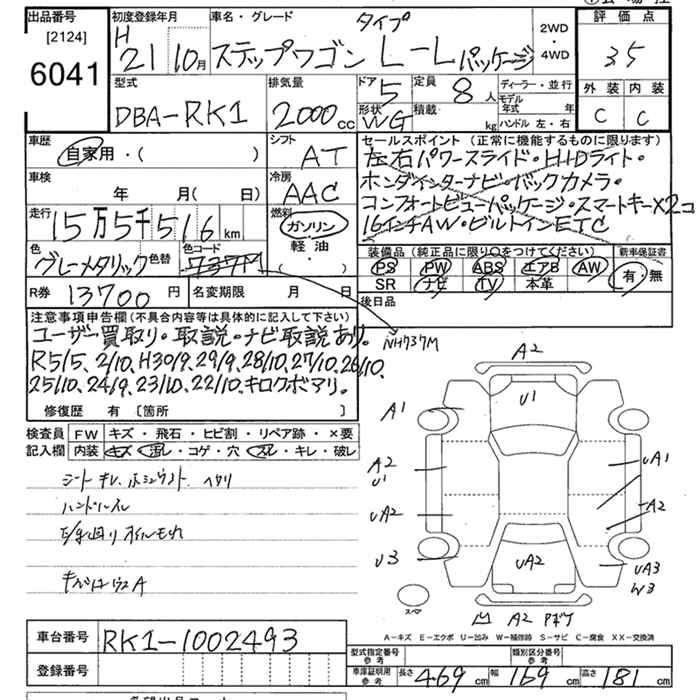 出品番号 初度登録年月 車名・グレード タイプ 評価点
[2124] H
6041 21 10月 ステップワゴン L-Lパッケージ 2WD・4WD 35
型式 排気量 ドア 5 定員 8人 ディーラー・並行 外装 内装
DBA-RK1 2000cc 形状 WG 積載 kg モデル年式 年 C C
ハンドル 左・右
車歴 シフト セールスポイント (正常に機能するものに限ります)
自家用・( ) AT 左右パワースライド・HIDライト・
車検 冷房 ホンダインターナビ・バックカメラ・
年 月( 日) AAC コンフォートビューパッケージ・スマートキーX2コ
走行 燃料 16インチAW・ビルトインETC
15万5千516km ガソリン
色 色替 色コード 軽油 装備品 (純正品に限り○をつけてください) 新車保証書
グレーメタリック 737M ・( ) PS PW ABS エアB AW 有・無
SR ナビ TV 本革
R券 13700円 名変期限 月 日 後日品
注意事項申告欄(不具合内容等は具体的に記入して下さい)
ユーザー買取り・取説・ナビ取説あり。 NH737M
R5/5、2/10、H30/9、29/9、28/10、27/10、26/10、
25/10、24/9、23/10、22/10、キロクボアリ。
修復歴 有 〔箇所 〕
検査員 FW キズ・飛石・ヒビ割・リペア跡・×要
記入欄 内装 キズ・汚レ・コゲ・穴・スレ・キレ・破レ
ハンドルスレ
A2
U1
A1
A2 U1
UA1
UA2
A2
U3
UA2
UA3
W3
スペア
A2
A-キズ E-エクボ U-凹み W-補修跡 S-サビ C-腐食 XX-交換済
車台番号 RK1-1002493
登録番号
型式指定番号 参考 類別区分番号 参考
車庫証明用 参考 長さ 469cm 幅 169cm 高さ 181cm